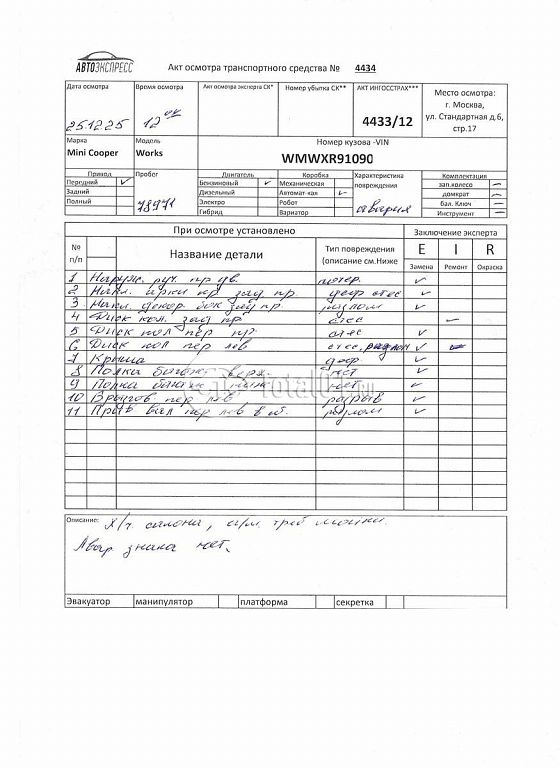 АВТОЭКСПРЕСС
Акт осмотра транспортного средства № 4434
Дата осмотра Время осмотра Акт осмотра эксперта СК* Номер убытка СК** АКТ ИНГОССТРАХ*** Место осмотра:
г. Москва,
ул. Стандартная д.6,
стр.17
25.12.25 12 4433/12
Марка Модель Номер кузова -VIN
Mini Cooper Works WMWXR91090
Привод Пробег Двигатель Коробка Характеристика повреждения Комплектация
Передний Бензиновый Механическая зап.колесо
Задний Дизельный Автомат-кая домкрат
Полный 78971 Электро Робот авария бал. Ключ
Гибрид Вариатор Инструмент
При осмотре установлено Заключение эксперта
№ п/п Название детали Тип повреждения (описание см.Ниже E I R
Замена Ремонт Окраска
1 Наруж. руч. пр дв. потер.
2 Накл. арки пр зад пр. деф отес
3 Накл. декор. бок зад пр разлом
4 Диск кол. зад пр отес
5 Диск кол пер пр. отес
6 Диск кол пер лев отес, разлом
7 Крыша деф
8 Полка багаж верх. нет
9 Полка багаж нет
10 пер лев разрыв
11 вал пер лев разлом
Описание: Х/ч. салона, а/м. треб мойки.
Авар знака нет.
Эвакуатор манипулятор платформа секретка